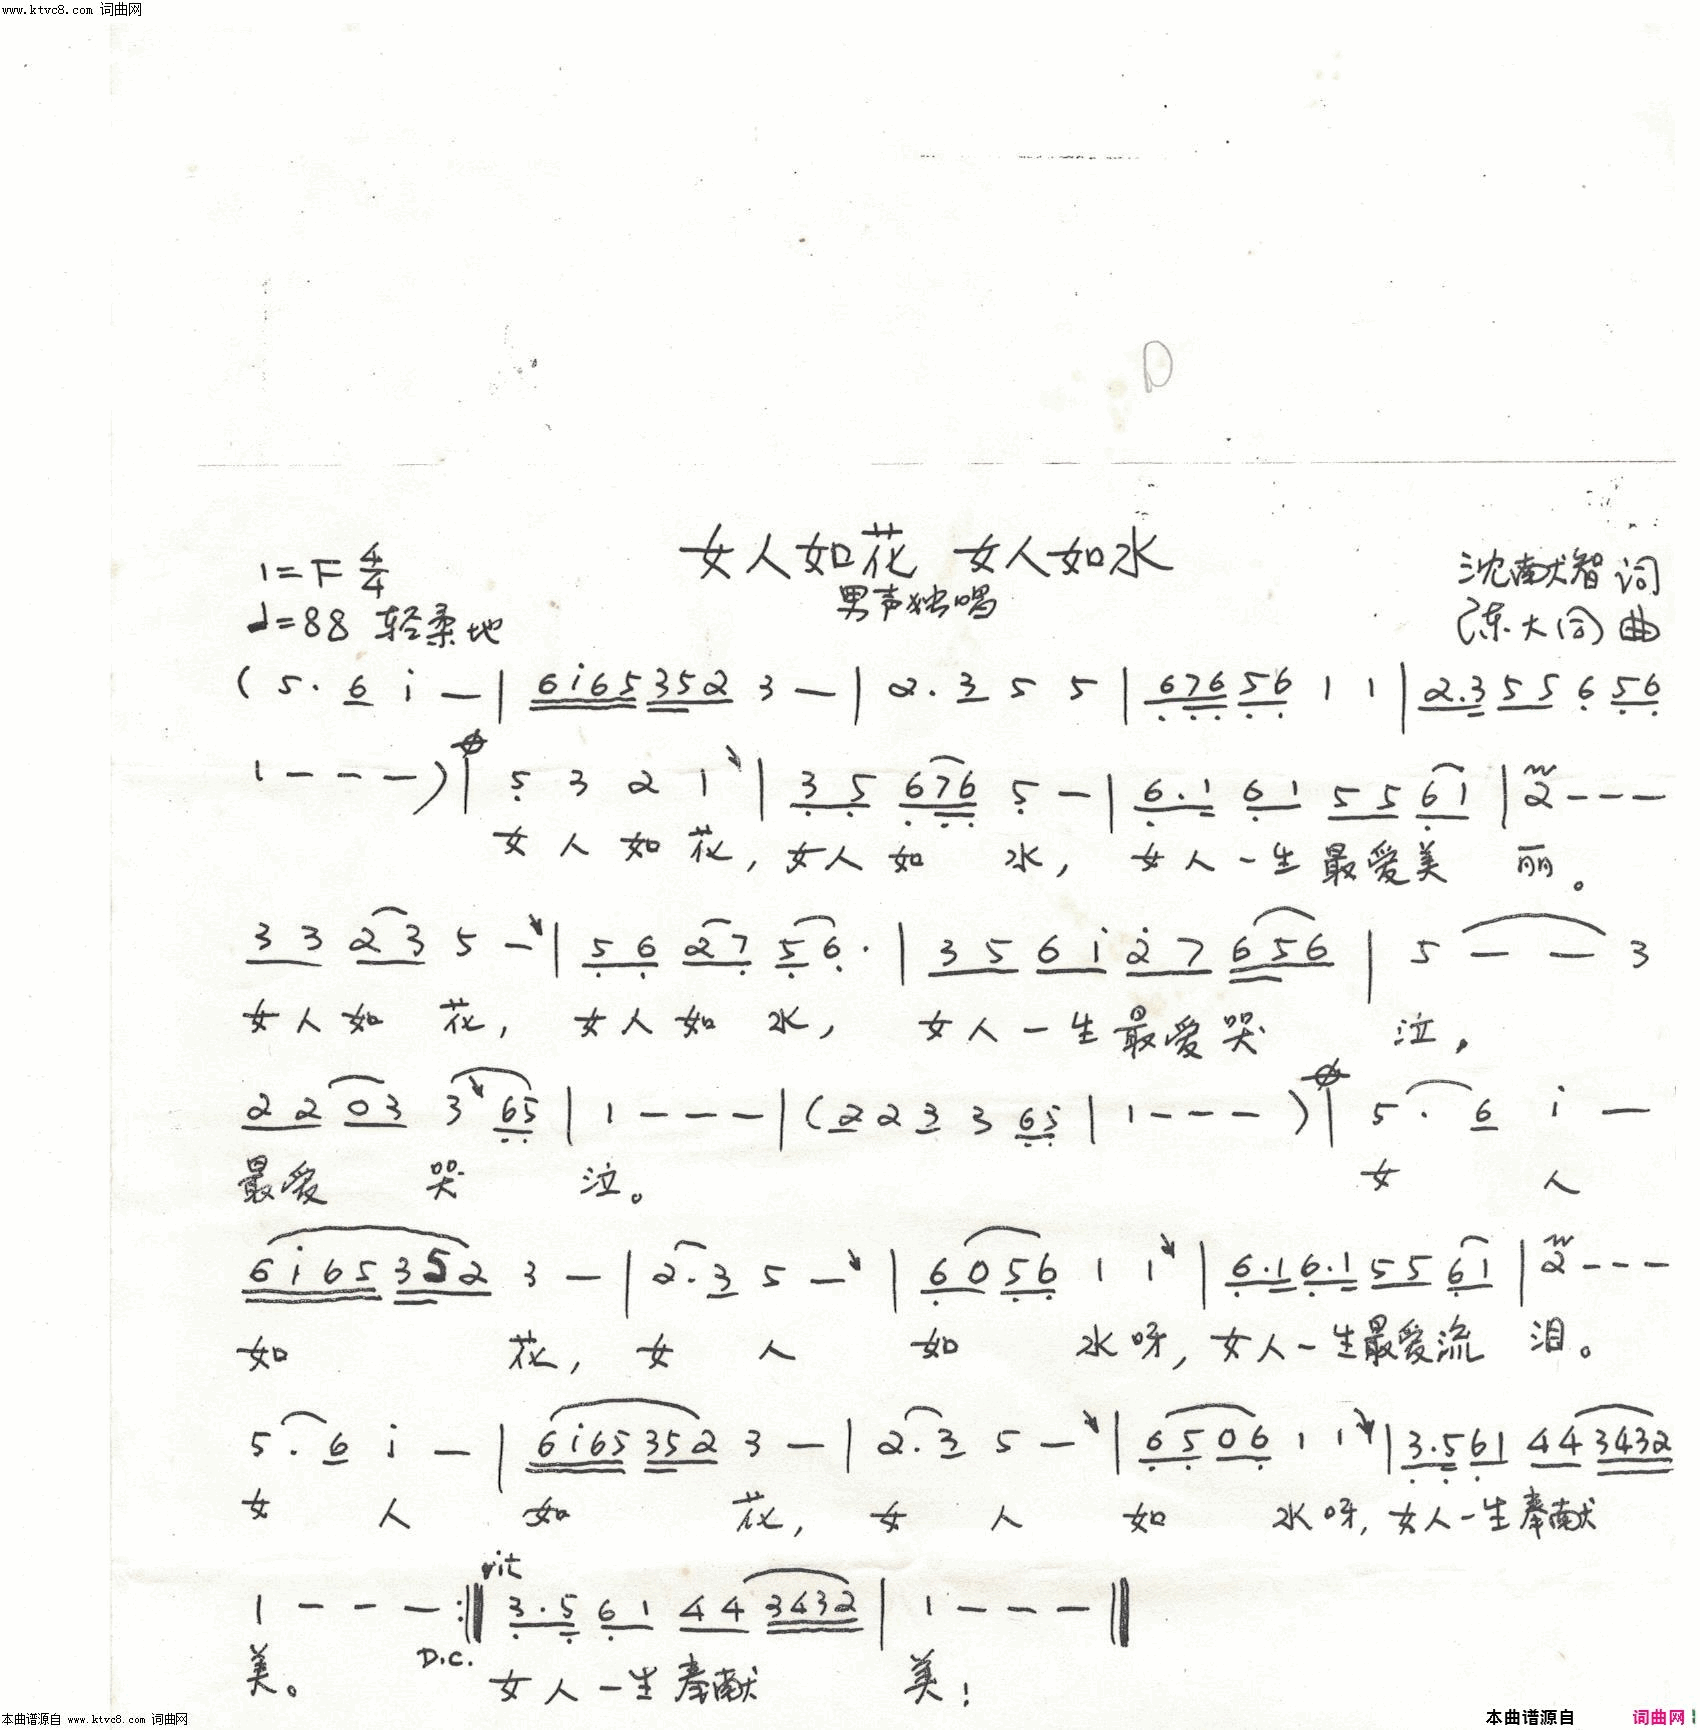 www.ktvc8.com 词曲网
D
女人如花 女人如水
1=F 4/4
♩=88 轻柔地
男声独唱
沈献智 词
陈大同 曲
( 5. 6 i — | 6i65 352 3 — | 2. 3 5 5 | 676 56 1 1 | 2.3 55 6 56
1 - - - ) | 5 3 2 1 | 3 5 676 5 — | 6.1 61 55 61 | 2 - - -
女人如花,女人如 水, 女人一生最爱美 丽。
33 23 5 — | 56 27 56. | 35 6i 2̇7 656 | 5 — — 3
女人如 花, 女人如 水, 女人一生最爱哭 泣,
22 03 3 65 | 1 - - - | (2 2 3 3 65 | 1 - - - ) | 5. 6 i —
最爱 哭 泣。 女 人
6i65 352 3 — | 2.3 5 — | 60 56 1 1 | 6.1 6.1 55 61 | 2 - - -
如 花, 女 人 如 水呀, 女人一生最爱流 泪。
5. 6 i — | 6i65 352 3 — | 2.3 5 — | 65 06 1 1 | 3.5 61 44 3432
女 人 如 花, 女 人 如 水呀, 女人一生奉献
rit
1 - - - :‖ 3.5 61 44 3432 | 1 - - - ‖
美。 D.C. 女人一生奉献 美!
本曲谱源自 www.ktvc8.com 词曲网
本曲谱源自 词曲网